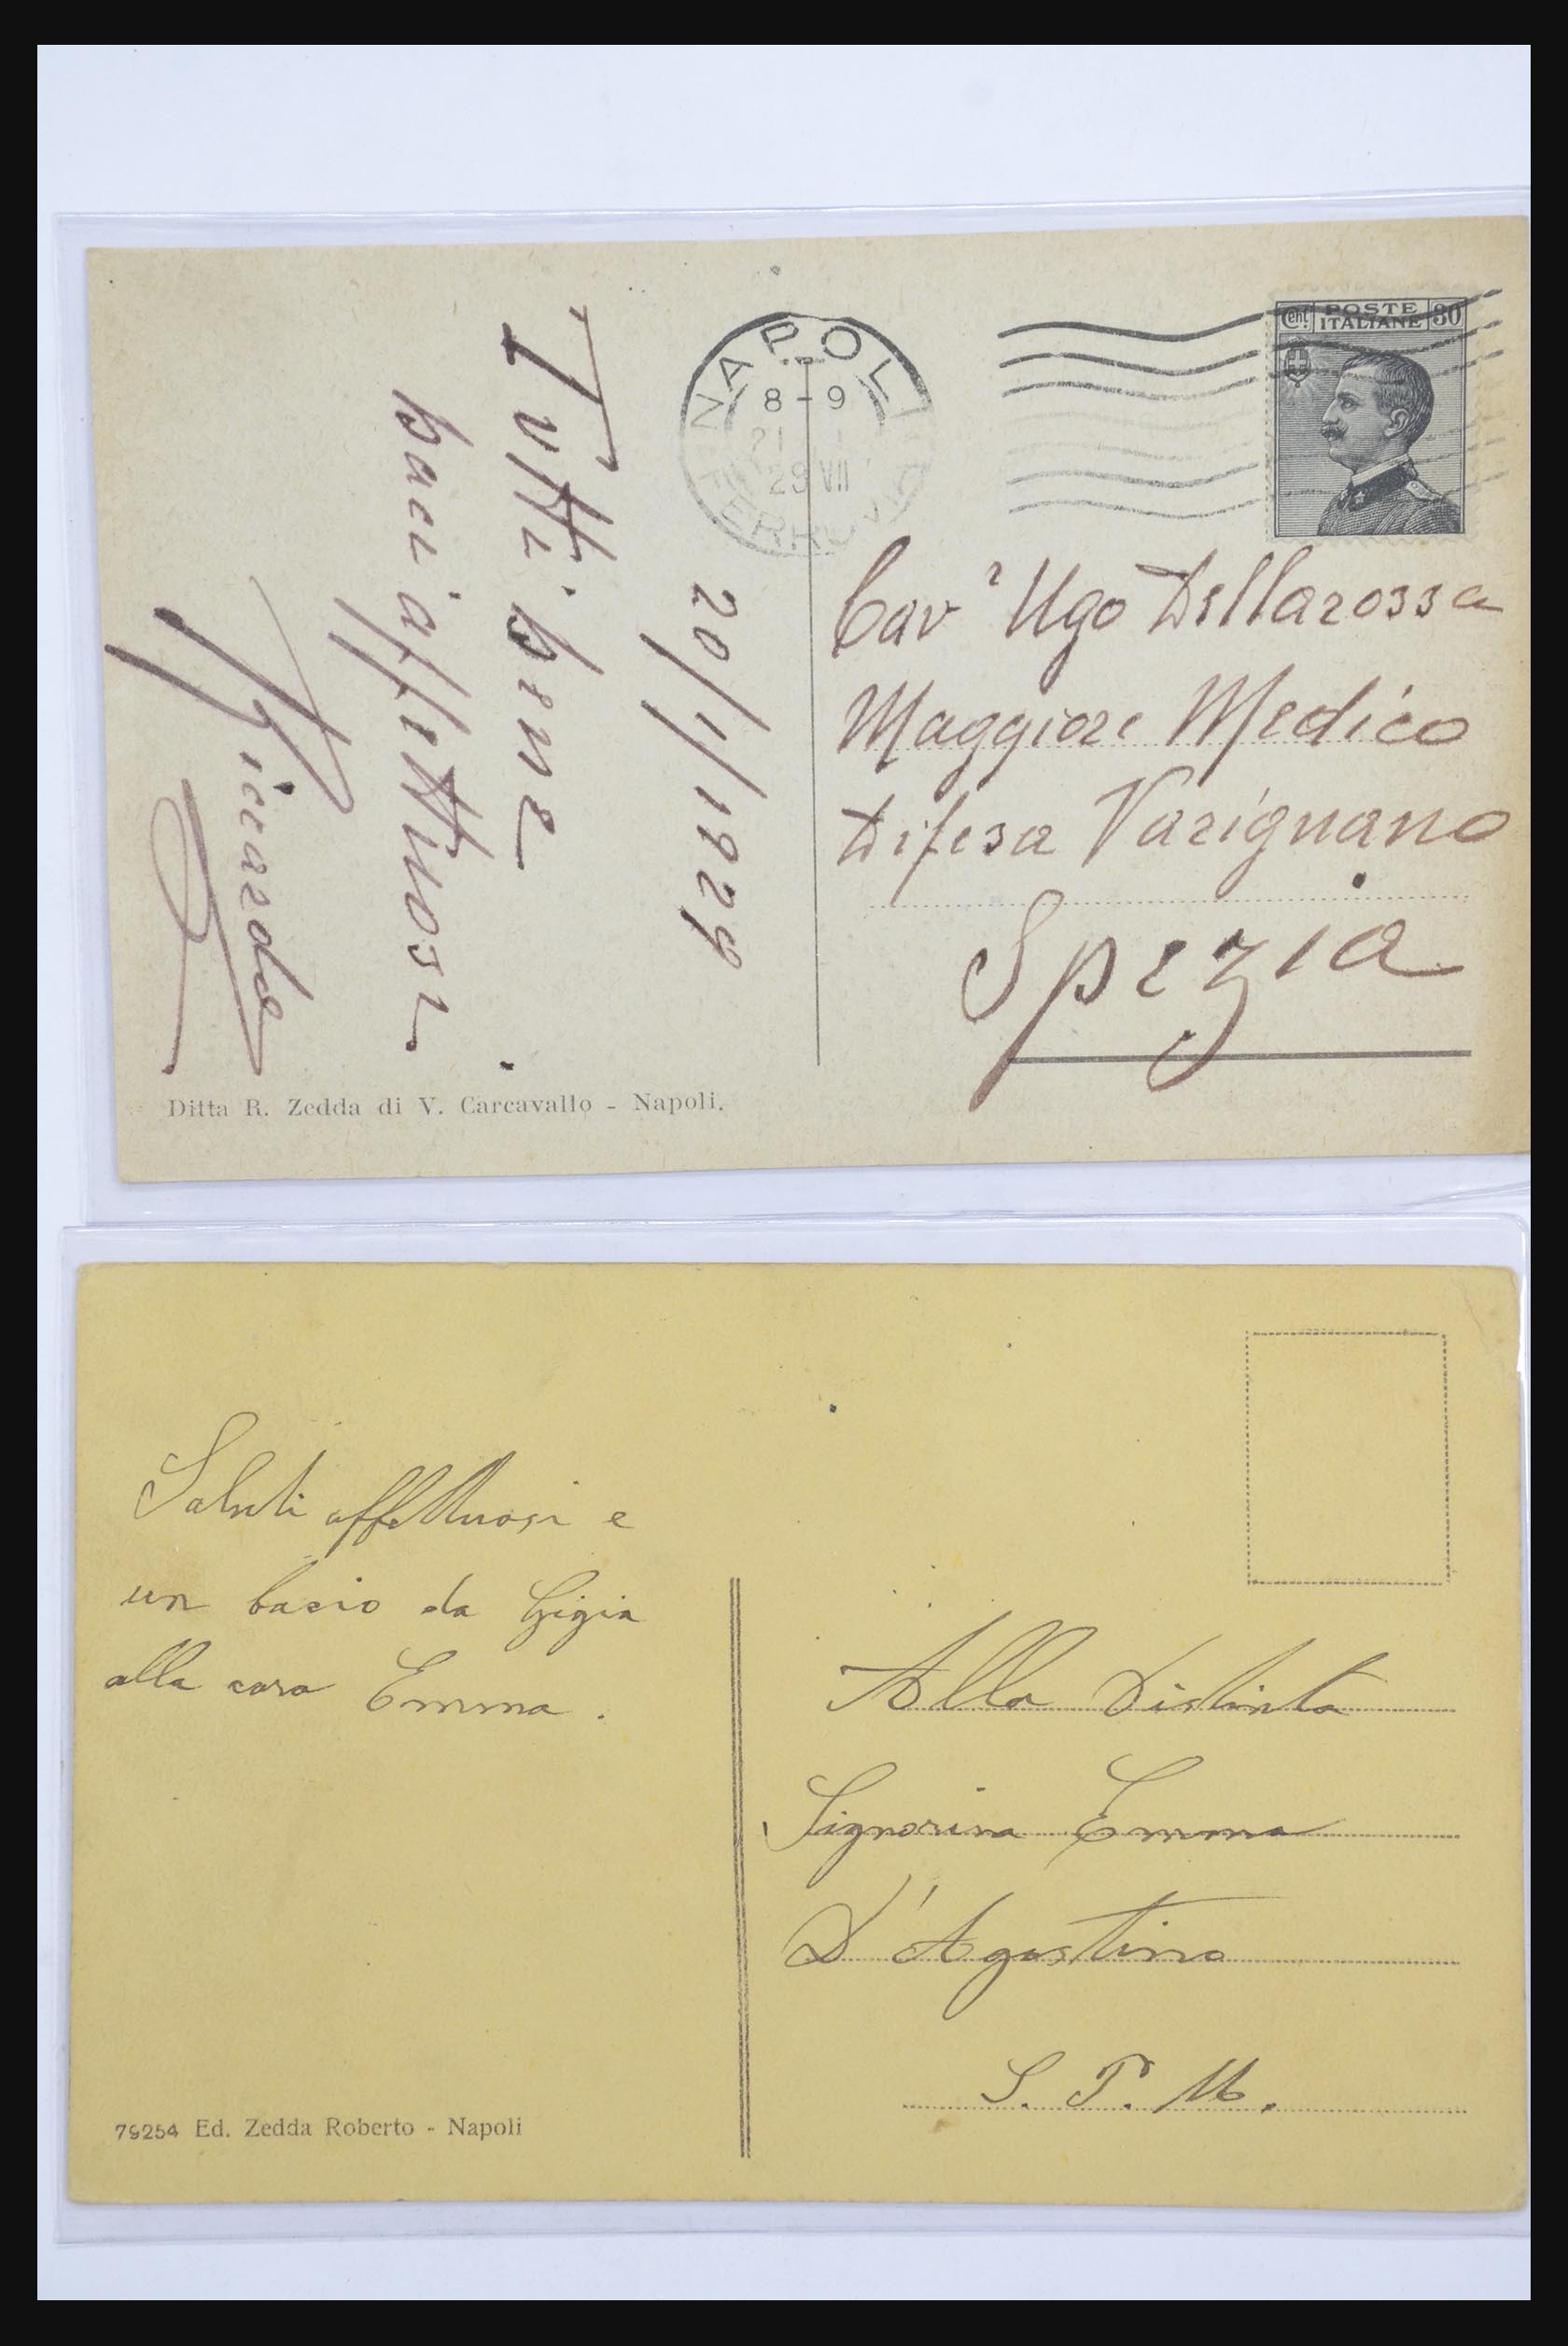 NAPOLI
8-9
21 1
29 VII
FERROVIA
Cent. POSTE ITALIANE 30
20/1/1929
Tutti bene
baci affettuosi
Riccardo
Cav.r Ugo Dellarossa
Maggiore Medico
Difesa Varignano
Spezia
Ditta R. Zedda di V. Carcavallo - Napoli.
Saluti affettuosi e
un bacio da Gigia
alla cara Emma.
Alla Distinta
Signorina Emma
D'Agostino
S. P. M.
79254 Ed. Zedda Roberto - Napoli